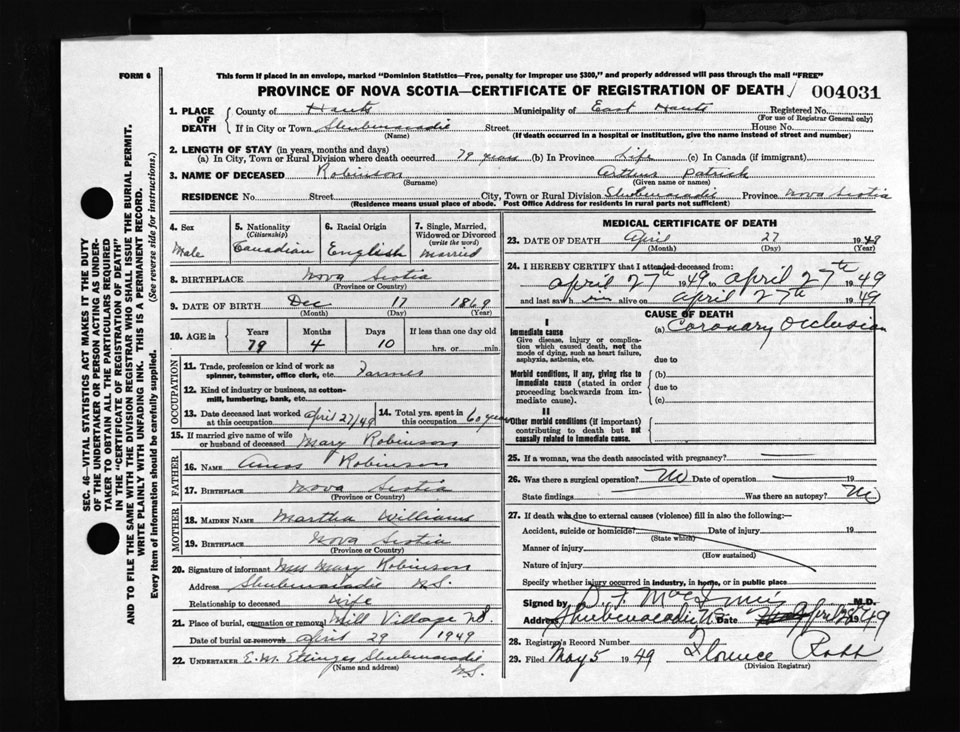 FORM 6
This form if placed in an envelope, marked "Dominion Statistics—Free, penalty for improper use $300," and properly addressed will pass through the mail "FREE"
PROVINCE OF NOVA SCOTIA—CERTIFICATE OF REGISTRATION OF DEATH 004031
SEC. 46—VITAL STATISTICS ACT MAKES IT THE DUTY
OF THE UNDERTAKER OR PERSON ACTING AS UNDER-
TAKER TO OBTAIN ALL THE PARTICULARS REQUIRED
IN THE "CERTIFICATE OF REGISTRATION OF DEATH"
AND TO FILE THE SAME WITH THE DIVISION REGISTRAR WHO SHALL ISSUE THE BURIAL PERMIT.
WRITE PLAINLY WITH UNFADING INK. THIS IS A PERMANENT RECORD.
Every item of information should be carefully supplied. (See reverse side for instructions.)
1. PLACE OF DEATH County of Hants Municipality of East Hants Registered No.
(For use of Registrar General only)
If in City or Town Shubenacadie Street House No.
(Name) (If death occurred in a hospital or institution, give the name instead of street and number)
2. LENGTH OF STAY (in years, months and days)
(a) In City, Town or Rural Division where death occurred 79 years (b) In Province Life (c) In Canada (if immigrant)
3. NAME OF DECEASED Robinson Arthur Patrick
(Surname) (Given name or names)
RESIDENCE No. Street City, Town or Rural Division Shubenacadie Province Nova Scotia
(Residence means usual place of abode. Post Office Address for residents in rural parts not sufficient)
4. Sex Male
5. Nationality (Citizenship) Canadian
6. Racial Origin English
7. Single, Married, Widowed or Divorced (write the word) Married
8. BIRTHPLACE Nova Scotia
(Province or Country)
9. DATE OF BIRTH Dec 17 1869
(Month) (Day) (Year)
10. AGE in Years Months Days If less than one day old
79 4 10 hrs. or min.
OCCUPATION
11. Trade, profession or kind of work as spinner, teamster, office clerk, etc. Farmer
12. Kind of industry or business, as cotton-mill, lumbering, bank, etc.
13. Date deceased last worked at this occupation April 27/49
14. Total yrs. spent in this occupation 60 years
15. If married give name of wife or husband of deceased Mary Robinson
FATHER
16. NAME Amos Robinson
17. BIRTHPLACE Nova Scotia
(Province or Country)
MOTHER
18. MAIDEN NAME Martha Williams
19. BIRTHPLACE Nova Scotia
(Province or Country)
20. Signature of informant Mrs Mary Robinson
Address Shubenacadie N.S.
Relationship to deceased wife
21. Place of burial, cremation or removal Mill Village N.S.
Date of burial or removal April 29 1949
22. UNDERTAKER E.M. Ettinger Shubenacadie
(Name and address) N.S.
MEDICAL CERTIFICATE OF DEATH
23. DATE OF DEATH April 27 1949
(Month) (Day)
24. I HEREBY CERTIFY that I attended deceased from:
april 27th 1949 to april 27th 1949
and last saw him alive on april 27th 1949
CAUSE OF DEATH
I
Immediate cause (a) Coronary Occlusion
Give disease, injury or complica-
tion which caused death, not the
mode of dying, such as heart failure,
asphyxia, asthenia, etc. due to
Morbid conditions, if any, giving rise to (b)
immediate cause (stated in order due to
proceeding backwards from im-
mediate cause). (c)
II
Other morbid conditions (if important)
contributing to death but not
causally related to immediate cause.
25. If a woman, was the death associated with pregnancy?
26. Was there a surgical operation? No Date of operation 19
State findings Was there an autopsy? No
27. If death was due to external causes (violence) fill in also the following:—
Accident, suicide or homicide? Date of injury 19
(State which)
Manner of injury
(How sustained)
Nature of injury
Specify whether injury occurred in industry, in home, or in public place
Signed by D. F. MacInnis M.D.
Address Shubenacadie N.S. Date April 28/49
28. Registrar's Record Number
29. Filed May 5 1949 Florence Robb
(Division Registrar)